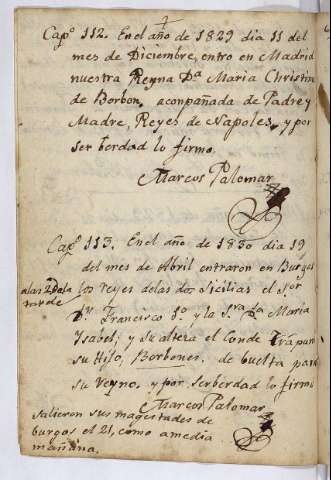 Capº 112. En el año de 1829 dia 11 del
mes de Diciembre, entro en Madrid
nuestra Reyna Dª Maria Christina
de Borbon, aconpañada de Padre y
Madre, Reyes de Napoles, y por
ser berdad lo firmo.
Marcos Palomar
Capº 113. En el año de 1830 dia 19
del mes de Abril entraron en Burgos
a las 2 de la
tarde
los reyes de las dos Sicilias el Sor
Dn Francisco 1º y la Sra Dª Maria
Ysabel; y su alteza el Conde Trápani
su Hijo, Borbones, de buelta para
su Reyno, y por ser berdad lo firmo
Marcos Palomar
Salieron sus magestades de
burgos el 21, como a media
mañana.